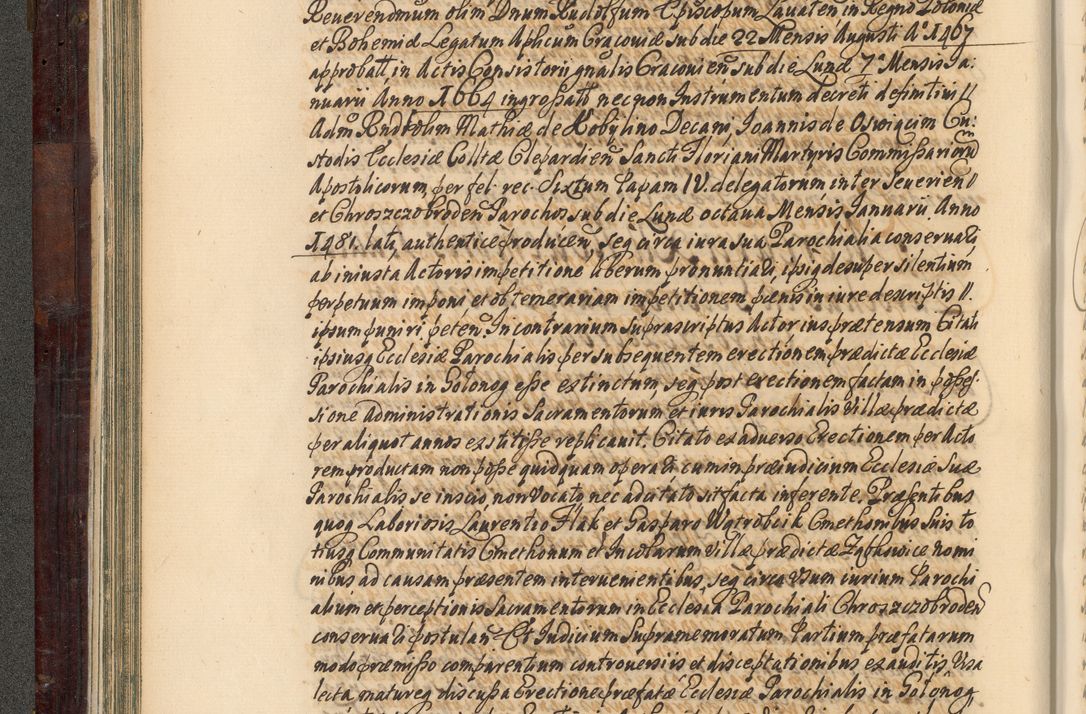 Reuerendmum olim Dnum Rudolfum Episcopum Lauaten in Regno Poloniæ
et Bohemiæ Legatum Aplicum Cracouiæ sub die 22 Mensis Augusti Aº 1467
approbatt, in Actis Consistorii gnalis Cracouien sub die Lunæ 7ª Mensis Ja:
nuarii Anno 1664 ingrossatt, necnon Instrumentum decreti definitiui
Adm Rndor olim Mathiæ de Kobylino Decani, Joannis de Oswiącim Cu:
stodis Ecclesiæ Colltæ Clepardien Sancti Floriani Martyris Commissariorum
Apostolicorum per fel: rec: Sixtum Papam IV. delegatorum inter Seuerien
et Chroszczobroden Parochos sub die Lunæ octaua Mensis Januarii Anno
1481. lati, authentice producen, seq circa iura sua Parochialia conseruati,
ab iniusta Actoris impetitione liberum pronuntiari, ipsiq desuper silentium
perpetuum imponi et ob temerariam impetitionem pœnis in iure descriptis
ipsum puniri peten. In contrarium suprascriptus Actor ius prætensum Citati
ipsiusq Ecclesiæ Parochialis per subsequentem erectionem prædictæ Ecclesiæ
Parochialis in Gołonog esse extinctum, seq post erectionem factam in posses-
sione Administrationis Sacramentorum, et iuris Parochialis Villæ prædictæ
per aliquot annos exstitisse replicauit. Citato ex aduerso Erectionem per Acto
rem productam non posse quidquam operari cum in præiudicium Ecclesiæ suæ
Parochialis se inscio, non vocato, nec ad citato sit facta inferente. Præsentibus
quoq Laboriosis Laurentio Flak et Gasparo Wątrobcik Cmethonibus suis to
tiusq Communitatis Cmethonum et Incolarum Villæ prædictæ Ząbkowice nomi
nibus ad causam præsentem interuenientibus, seq circa Vsum iurium Parochi
alium et perceptionis Sacramentorum in Ecclesia Parochiali Chroszczobroden
conseruari postulan. Et Iudicium Supramemoratum Partium præfatarum
modo præmisso comparentium controuersiis et disceptationibus exauditis Visa
lecta matureq discussa Erectione præfatæ Ecclesiæ Parochialis in Gołonog